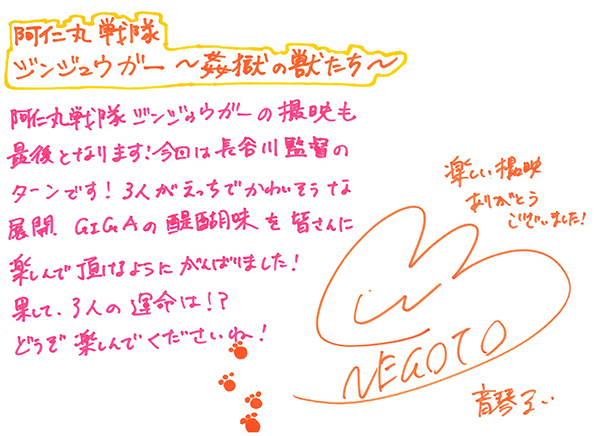 阿仁丸戦隊
ジンジュウガー 〜姦獄の獣たち〜
阿仁丸戦隊ジンジュウガーの撮映も
最後となります!今回は長谷川監督の
ターンです!3人がえっちでかわいそうな
展開 GIGAの醍醐味を皆さんに
楽しんで頂けるようにがんばりました!
果して、3人の運命は!?
どうぞ楽しんでくださいね!
楽しい撮映
ありがとう
ございました!
NEGOTO
音琴るい